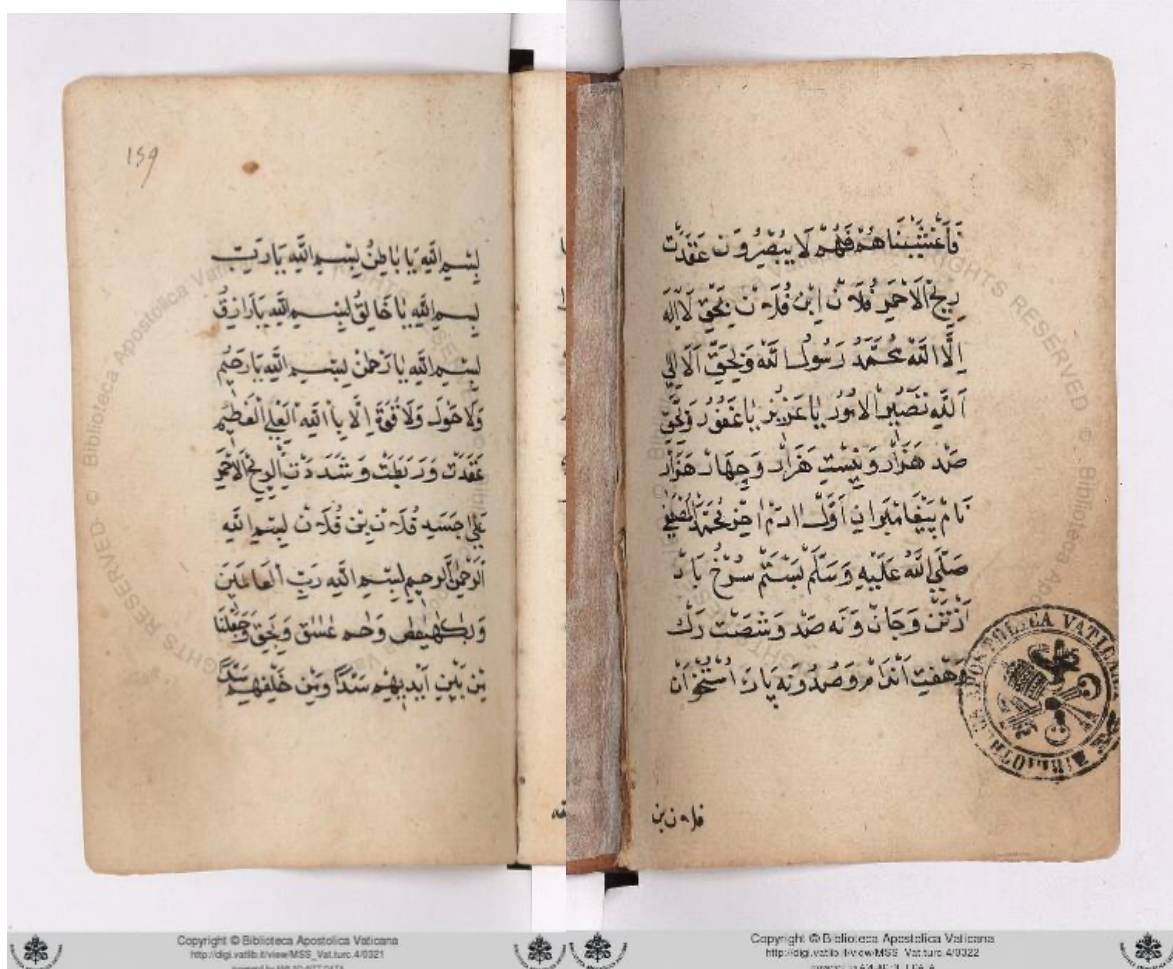 159
بِسْمِ اللّٰهِ يَا بَاطِنُ بِسْمِ اللّٰهِ يَا رَبِّ
بِسْمِ اللّٰهِ يَا خَالِقُ بِسْمِ اللّٰهِ يَا رَازِقُ
بِسْمِ اللّٰهِ يَا رَحْمٰنُ بِسْمِ اللّٰهِ يَا رَحِيْمُ
وَلَا حَوْلَ وَلَا قُوَّةَ اِلَّا بِااللّٰهِ الْعَلِيِّ الْعَظِيْمِ
عَقَدْتُ وَرَبَطْتُ وَشَدَدْتُ الرِّيْحَ الْاَحْمَرَ
عَلٰي جَسَدِ فُلَانْ بِنْ فُلَانْ بِسْمِ اللّٰهِ
الرَّحْمٰنِ الرَّحِيْمِ بِسْمِ اللّٰهِ رَبِّ الْعَالَمِيْنَ
وَبِكٓهٰيٰعٓصٓ وَحٰمٓ عٓسٓقٓ وَبِحَقِّ وَجَعَلْنَا
مِنْ بَيْنِ اَيْدِيْهِمْ سَدًّا وَمِنْ خَلْفِهِمْ سَدًّا
فَاَغْشَيْنَاهُمْ فَهُمْ لَا يُبْصِرُوْنَ عَقَدْتُ
رِيْحَ الْاَحْمَرِ فُلَانْ اِبْنِ فُلَانْ بِحَقِّ لَا اِلٰهَ
اِلَّا اللّٰهُ مُحَمَّدٌ رَسُولُ اللّٰهِ وَبِحَقِّ اَلَا اِلَي
اللّٰهِ تَصِيْرُ الْاُمُوْرُ يَا عَزِيْزُ يَا غَفُوْرُ وَبِحَقِّ
صَدْ هَزَارْ وَبِيْسْتْ هَزَارْ وَچِهَارْ هَزَارْ
نَامْ پَيْغَامْبَرَانِ اَوَّلْ اٰدَمْ اٰخِرْ مُحَمَّدَ الْمُصْطَفٰي
صَلَّي اللّٰهُ عَلَيْهِ وَسَلَّمْ بَسْتَمْ سُرْخْ بَادْ
اَزْتَنْ وَجَانْ وَنَه صَدْ وَشَصْتْ رَكْ
وَهَفْتْ اَنْدَامْ وَصَدُ وَنَه پَارَ اُسْتُخْوَانْ
فلان بن
Copyright © Biblioteca Apostolica Vaticana
http://digi.vatlib.it/view/MSS_Vat.turc.4/0321
Copyright © Biblioteca Apostolica Vaticana
http://digi.vatlib.it/view/MSS_Vat.turc.4/0322